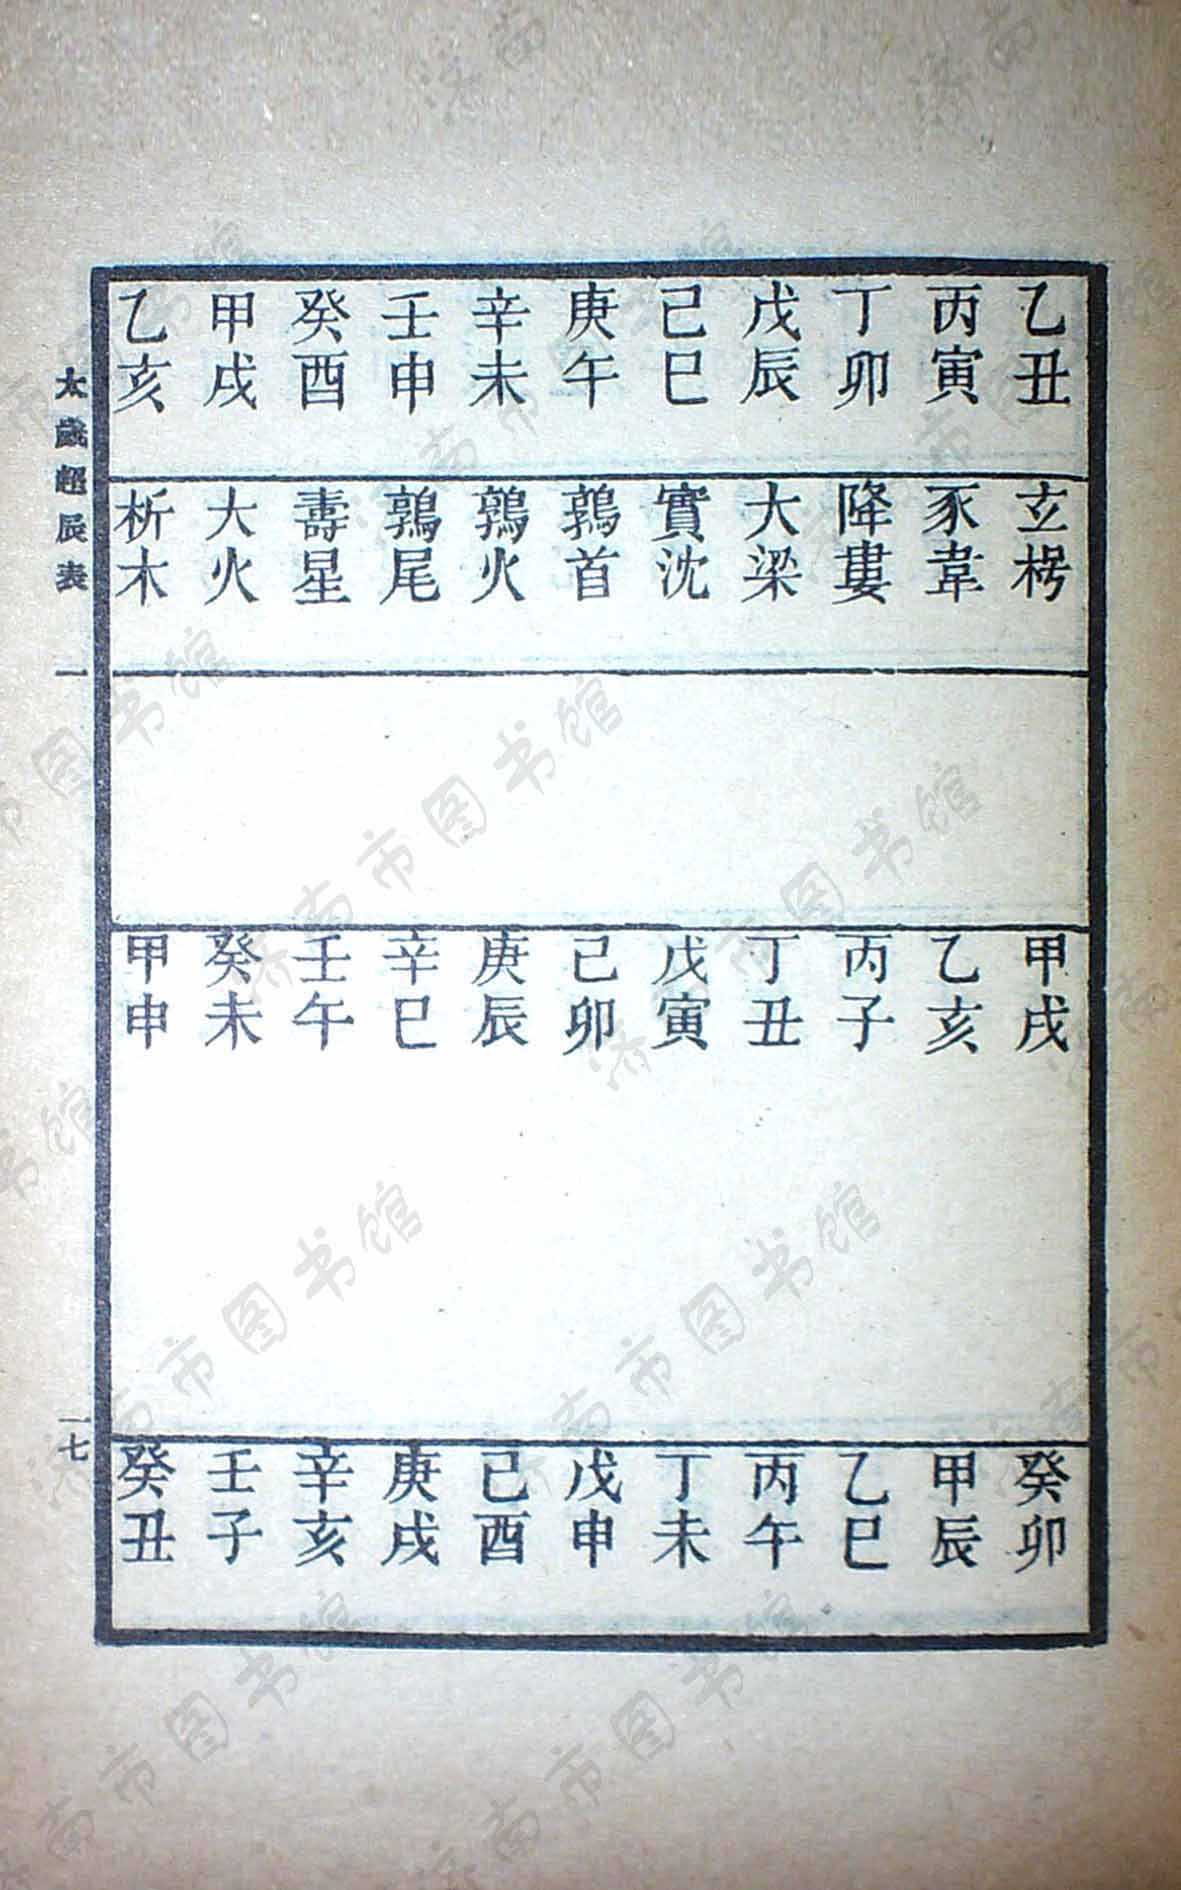 乙丑 玄枵 甲戌 癸卯
丙寅 豕韋 乙亥 甲辰
丁卯 降婁 丙子 乙巳
戊辰 大梁 丁丑 丙午
己巳 實沈 戊寅 丁未
庚午 鶉首 己卯 戊申
辛未 鶉火 庚辰 己酉
壬申 鶉尾 辛巳 庚戌
癸酉 壽星 壬午 辛亥
甲戌 大火 癸未 壬子
乙亥 析木 甲申 癸丑
太歲超辰表 一 一七
济南市图书馆